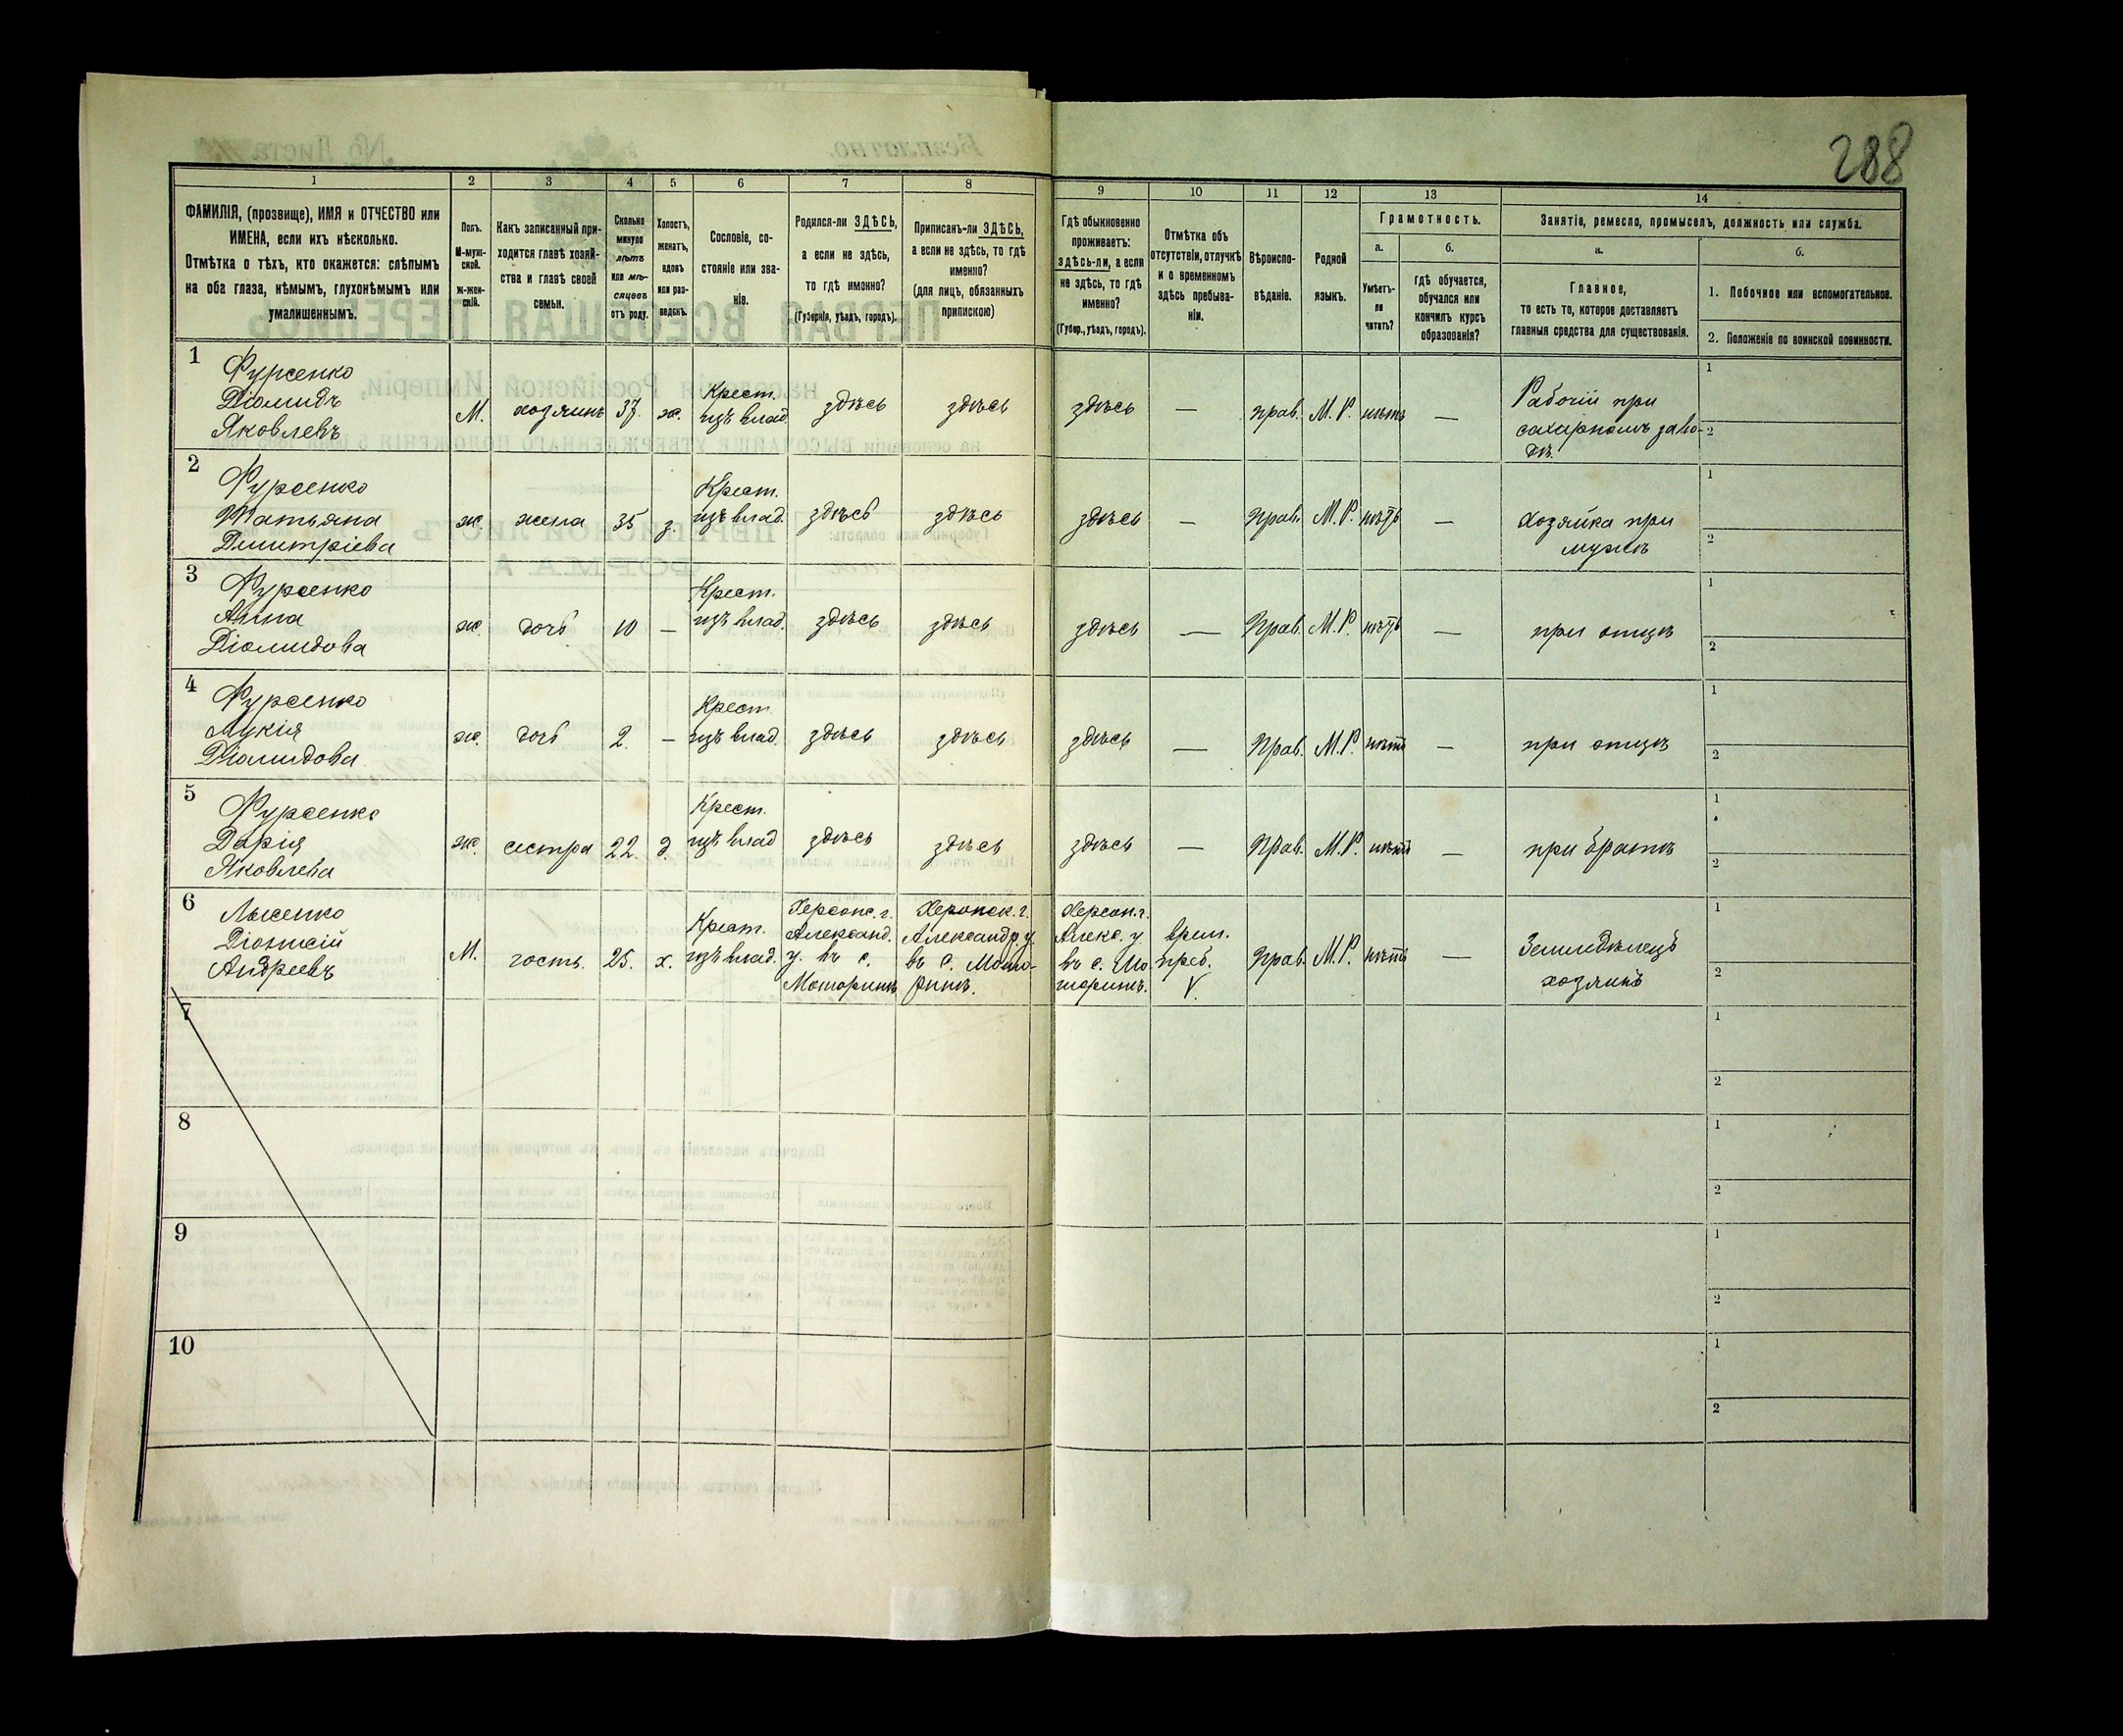 288
1 2 3 4 5 6 7 8 9 10 11 12 13 14
ФАМИЛІЯ, (прозвище), ИМЯ и ОТЧЕСТВО или
ИМЕНА, если ихъ нѣсколько.
Отмѣтка о тѣхъ, кто окажется: слѣпымъ
на оба глаза, нѣмымъ, глухонѣмымъ или
умалишеннымъ.
Полъ.
М-муж-
ской.
ж-жен-
скій.
Какъ записанный при-
ходится главѣ хозяй-
ства и главѣ своей
семьи.
Сколько
минуло
лѣтъ
или мѣ-
сяцевъ
отъ роду.
Холостъ,
женатъ,
вдовъ
или раз-
веденъ.
Сословіе, со-
стояніе или зва-
ніе.
Родился-ли ЗДѢСЬ,
а если не здѣсь,
то гдѣ именно?
(Губернія, уѣздъ, городъ).
Приписанъ-ли ЗДѢСЬ,
а если не здѣсь, то гдѣ
именно?
(для лицъ, обязанныхъ
припискою)
Гдѣ обыкновенно
проживаетъ:
здѣсь-ли, а если
не здѣсь, то гдѣ
именно?
(Губер., уѣздъ, городъ).
Отмѣтка объ
отсутствіи, отлучкѣ
и о временномъ
здѣсь пребыва-
ніи.
Вѣроиспо-
вѣданіе.
Родной
языкъ.
Грамотность.
а.
Умѣетъ-
ли
читать?
б.
гдѣ обучается,
обучался или
кончилъ курсъ
образованія?
Занятіе, ремесло, промыселъ, должность или служба.
а.
Главное,
то есть то, которое доставляетъ
главныя средства для существованія.
б.
1. Побочное или вспомогательное.
2. Положеніе по воинской повинности.
1
Фурсенко
Діомидъ
Яковлевъ
М.
хозяинъ
37.
ж.
Крест.
изъ влад.
здѣсь
здѣсь
здѣсь
—
прав.
М. Р.
нѣтъ
—
Рабочій при
сахарномъ заво-
дѣ.
1
2
2
Фурсенко
Татьяна
Дмитріева
ж.
жена
35
з.
Крест.
изъ влад.
здѣсь
здѣсь
здѣсь
—
Прав.
М. Р.
нѣтъ
—
хозяйка при
мужѣ
1
2
3
Фурсенко
Анна
Діомидова
ж.
дочь
10
—
Крест.
изъ влад.
здѣсь
здѣсь
здѣсь
—
Прав.
М. Р.
нѣтъ
—
при отцѣ
1
2
4
Фурсенко
Лукія
Діомидова
ж.
дочь
2.
—
Крест.
изъ влад.
здѣсь
здѣсь
здѣсь
—
Прав.
М. Р.
нѣтъ
—
при отцѣ
1
2
5
Фурсенко
Дарія
Яковлева
ж.
сестра
22.
д.
Крест.
изъ влад
здѣсь
здѣсь
здѣсь
—
Прав.
М. Р.
нѣтъ
—
при братѣ
1
2
6
Лысенко
Діонисій
Андреевъ
М.
гость.
25.
х.
Крест.
изъ влад.
Херсонс. г.
Александ.
у. въ с.
Моторинѣ
Херонск. г.
Александр. у.
въ с. Мото-
ринѣ.
Херсон. г.
Алекс. у.
въ с. Мо-
торинѣ.
врем.
преб.
V.
Прав.
М. Р.
нѣтъ
—
Земледѣлецъ
хозяинъ
1
2
7
1
2
8
1
2
9
1
2
10
1
2